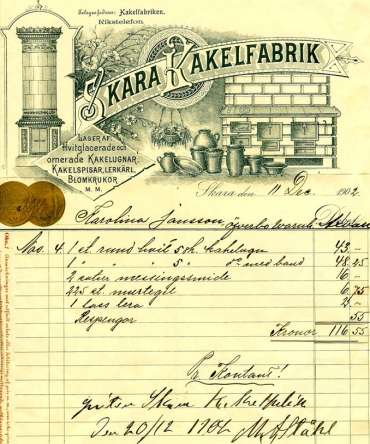 Telegrafadress: Kakelfabriken.
Rikstelefon.
SKARA KAKELFABRIK
LAGER AF
Hvitglacerade och
omerade KAKELUGNAR,
KAKELSPISAR, LERKÄRL,
BLOMKRUKOR
M. M.
Skara den 11 Dec. 1902
Karolina Jansson,
No. 4. 1 st rund hvit 5 sk. kakelugn 43 -
1 " " 5 " med band 48. 25
2 satser messingsmide 16 -
225 st murtegel 6. 75
1 lass lera 2. -
Respengar 55
Kronor 116. 55
Pr Kontant!
den 20/12 1902